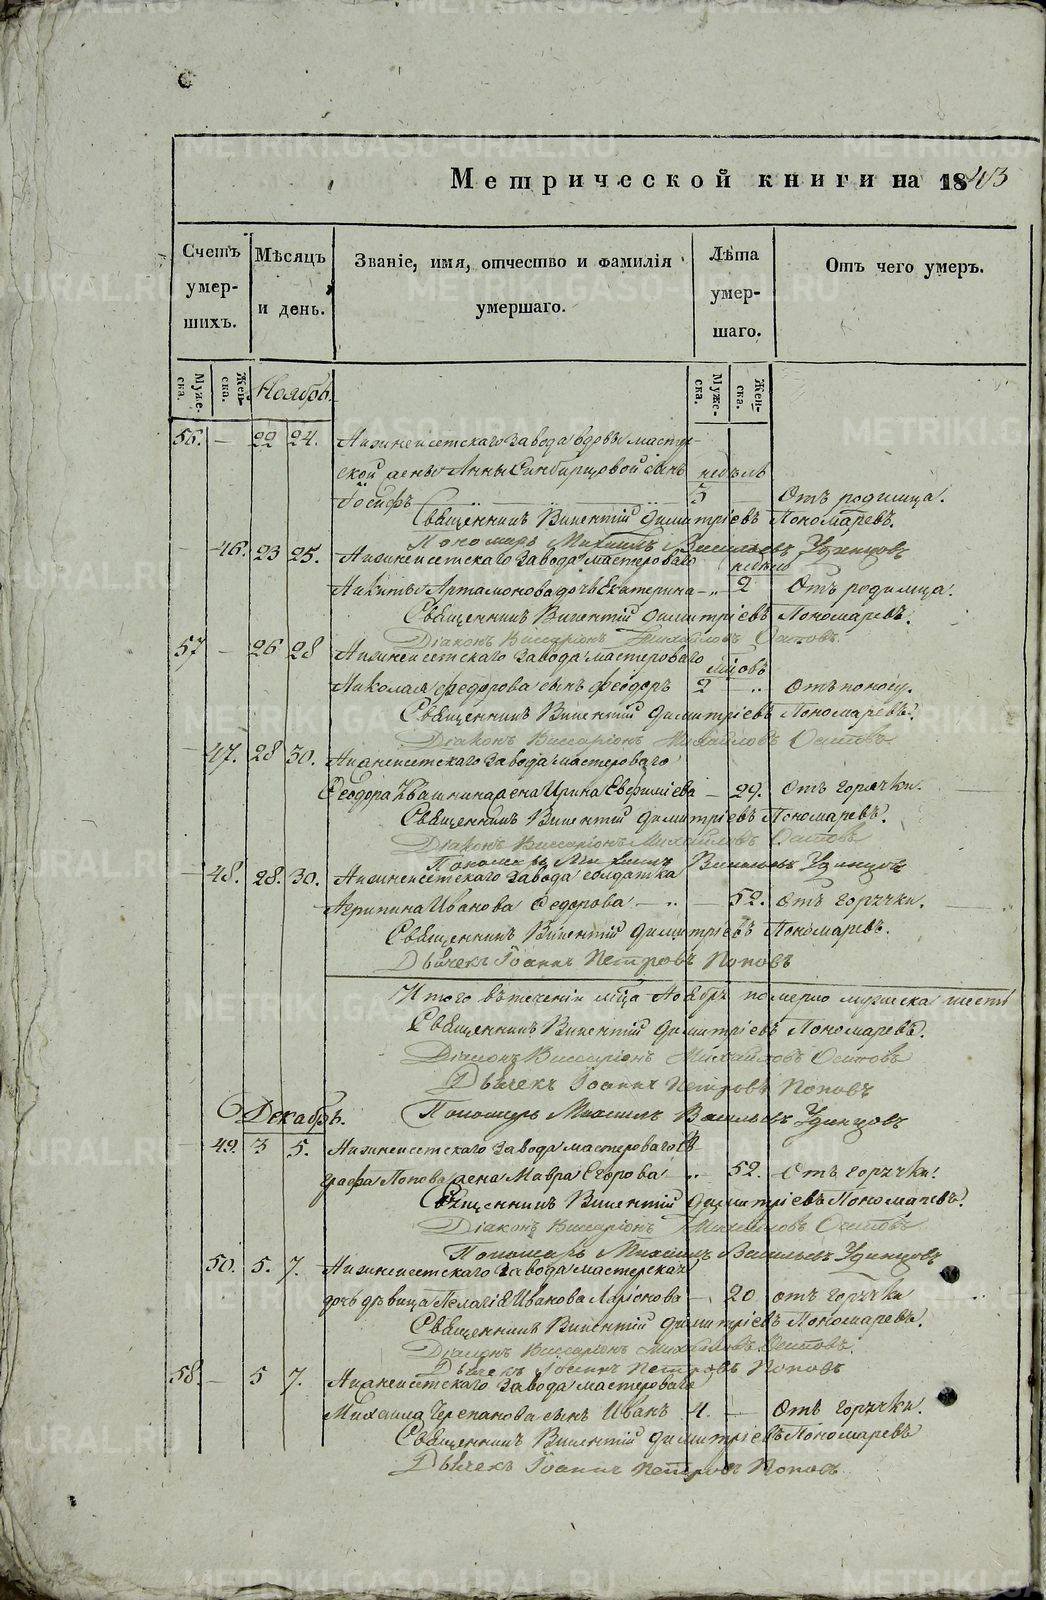 Метрической книги на 1843
Счетъ умер- шихъ.
Мѣсяцъ и день.
Званіе, имя, отчество и фамилія умершаго.
Лѣта умер- шаго.
Отъ чего умеръ.
Муже- ска. Жен- ска. Ноябрь. Муже- ска. Жен- ска.
56. — 22 24. Нижнеисетскаго завода вдовы мастер-
ской жены Анны Синбирцовой сынъ недѣль
Іосифъ 3 — Отъ родимца.
Священникъ Викентій Димитріевъ Пономаревъ.
Пономарь Михаилъ Васильевъ Удинцовъ
— 46. 23 25. Нижнеисетскаго завода мастероваго недѣль
Никиты Артамонова дочь Екатерина — „ — 2 Отъ родимца.
Священникъ Викентій Димитріевъ Пономаревъ.
Діаконъ Виссаріонъ Михайловъ Осиповъ
57 — 26 28 Нижнеисетскаго завода мастероваго мцовъ
Николая Федорова сынъ Феодоръ 2 — „ Отъ поносу.
Священникъ Викентій Димитріевъ Пономаревъ.
Діаконъ Виссаріонъ Михайловъ Осиповъ
— 47. 28 30. Нижнеисетскаго завода мастероваго
Феодора Квашнина жена Ирина Евфиміева — 29. Отъ горячки.
Священникъ Викентій Димитріевъ Пономаревъ.
Діаконъ Виссаріонъ Михайловъ Осиповъ
Пономарь Михаилъ Васильевъ Удинцовъ
— 48. 28. 30. Нижнеисетскаго завода солдатка
Агрипина Иванова Федорова — „ — 52. Отъ горячки.
Священникъ Викентій Димитріевъ Пономаревъ.
Дьячекъ Іоаннъ Петровъ Поповъ
Итого въ теченіи мца Ноября померло мужеска шесть
Священникъ Викентій Димитріевъ Пономаревъ.
Діаконъ Виссаріонъ Михайловъ Осиповъ
Дьячекъ Іоаннъ Петровъ Поповъ
Декабрь. Пономарь Михаилъ Васильевъ Удинцовъ
— 49. 3 5. Нижнеисетскаго завода мастероваго Ев
графа Попова жена Мавра Егорова „ 52. Отъ горячки.
Священникъ Викентій Димитріевъ Пономаревъ.
Діаконъ Виссаріонъ Михайловъ Осиповъ
Пономарь Михаилъ Васильевъ Удинцовъ
50. 5. 7. Нижнеисетскаго завода мастерская
дочь дѣвица Пелагія Иванова Ларіонова — 20 отъ горячки
Священникъ Викентій Димитріевъ Пономаревъ.
Діаконъ Виссаріонъ Михайловъ Осиповъ.
Дьячекъ Іоаннъ Петровъ Поповъ
58. — 5 7. Нижнеисетскаго завода мастероваго
Михаила Черепанова сынъ Иванъ 4. — Отъ горячки.
Священникъ Викентій Димитріевъ Пономаревъ
Дьячекъ Іоаннъ Петровъ Поповъ
METRIKI.GASO-URAL.RU